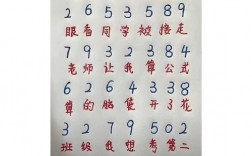 2 6 5 3 5 8 9
眼看同学被接走
7 9 3 2 3 8 4
老师让我算公式
6 2 6 4 3 3 8
算的脑袋开了花
3 2 7 9 5 0 2
班级我想考第二